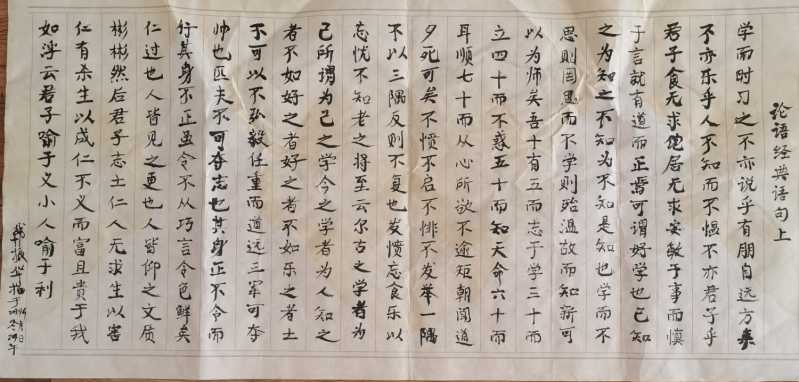 论语经典语句上
学而时习之不亦说乎有朋自远方来
不亦乐乎人不知而不愠不亦君子乎
君子食无求饱居无求安敏于事而慎
于言就有道而正焉可谓好学也已知
之为知之不知为不知是知也学而不
思则罔思而不学则殆温故而知新可
以为师矣吾十有五而志于学三十而
立四十而不惑五十而知天命六十而
耳顺七十而从心所欲不逾矩朝闻道
夕死可矣不愤不启不悱不发举一隅
不以三隅反则不复也发愤忘食乐以
忘忧不知老之将至云尔古之学者为
己所谓为己之学今之学者为人知之
者不如好之者好之者不如乐之者士
不可以不弘毅任重而道远三军可夺
帅也匹夫不可夺志也其身正不令而
行其身不正虽令不从巧言令色鲜矣
仁过也人皆见之更也人皆仰之文质
彬彬然后君子志士仁人无求生以害
仁有杀生以成仁不义而富且贵于我
如浮云君子喻于义小人喻于利